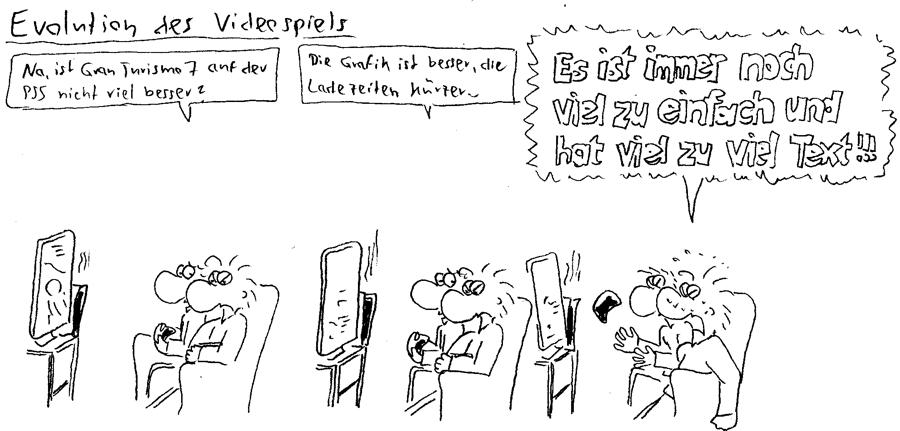 Evolution des Videospiels
Na, ist Gran Turismo 7 auf der
PS5 nicht viel besser?
Die Grafik ist besser, die
Ladezeiten kürzer~
Es ist immer noch
viel zu einfach und
hat viel zu viel Text!!!